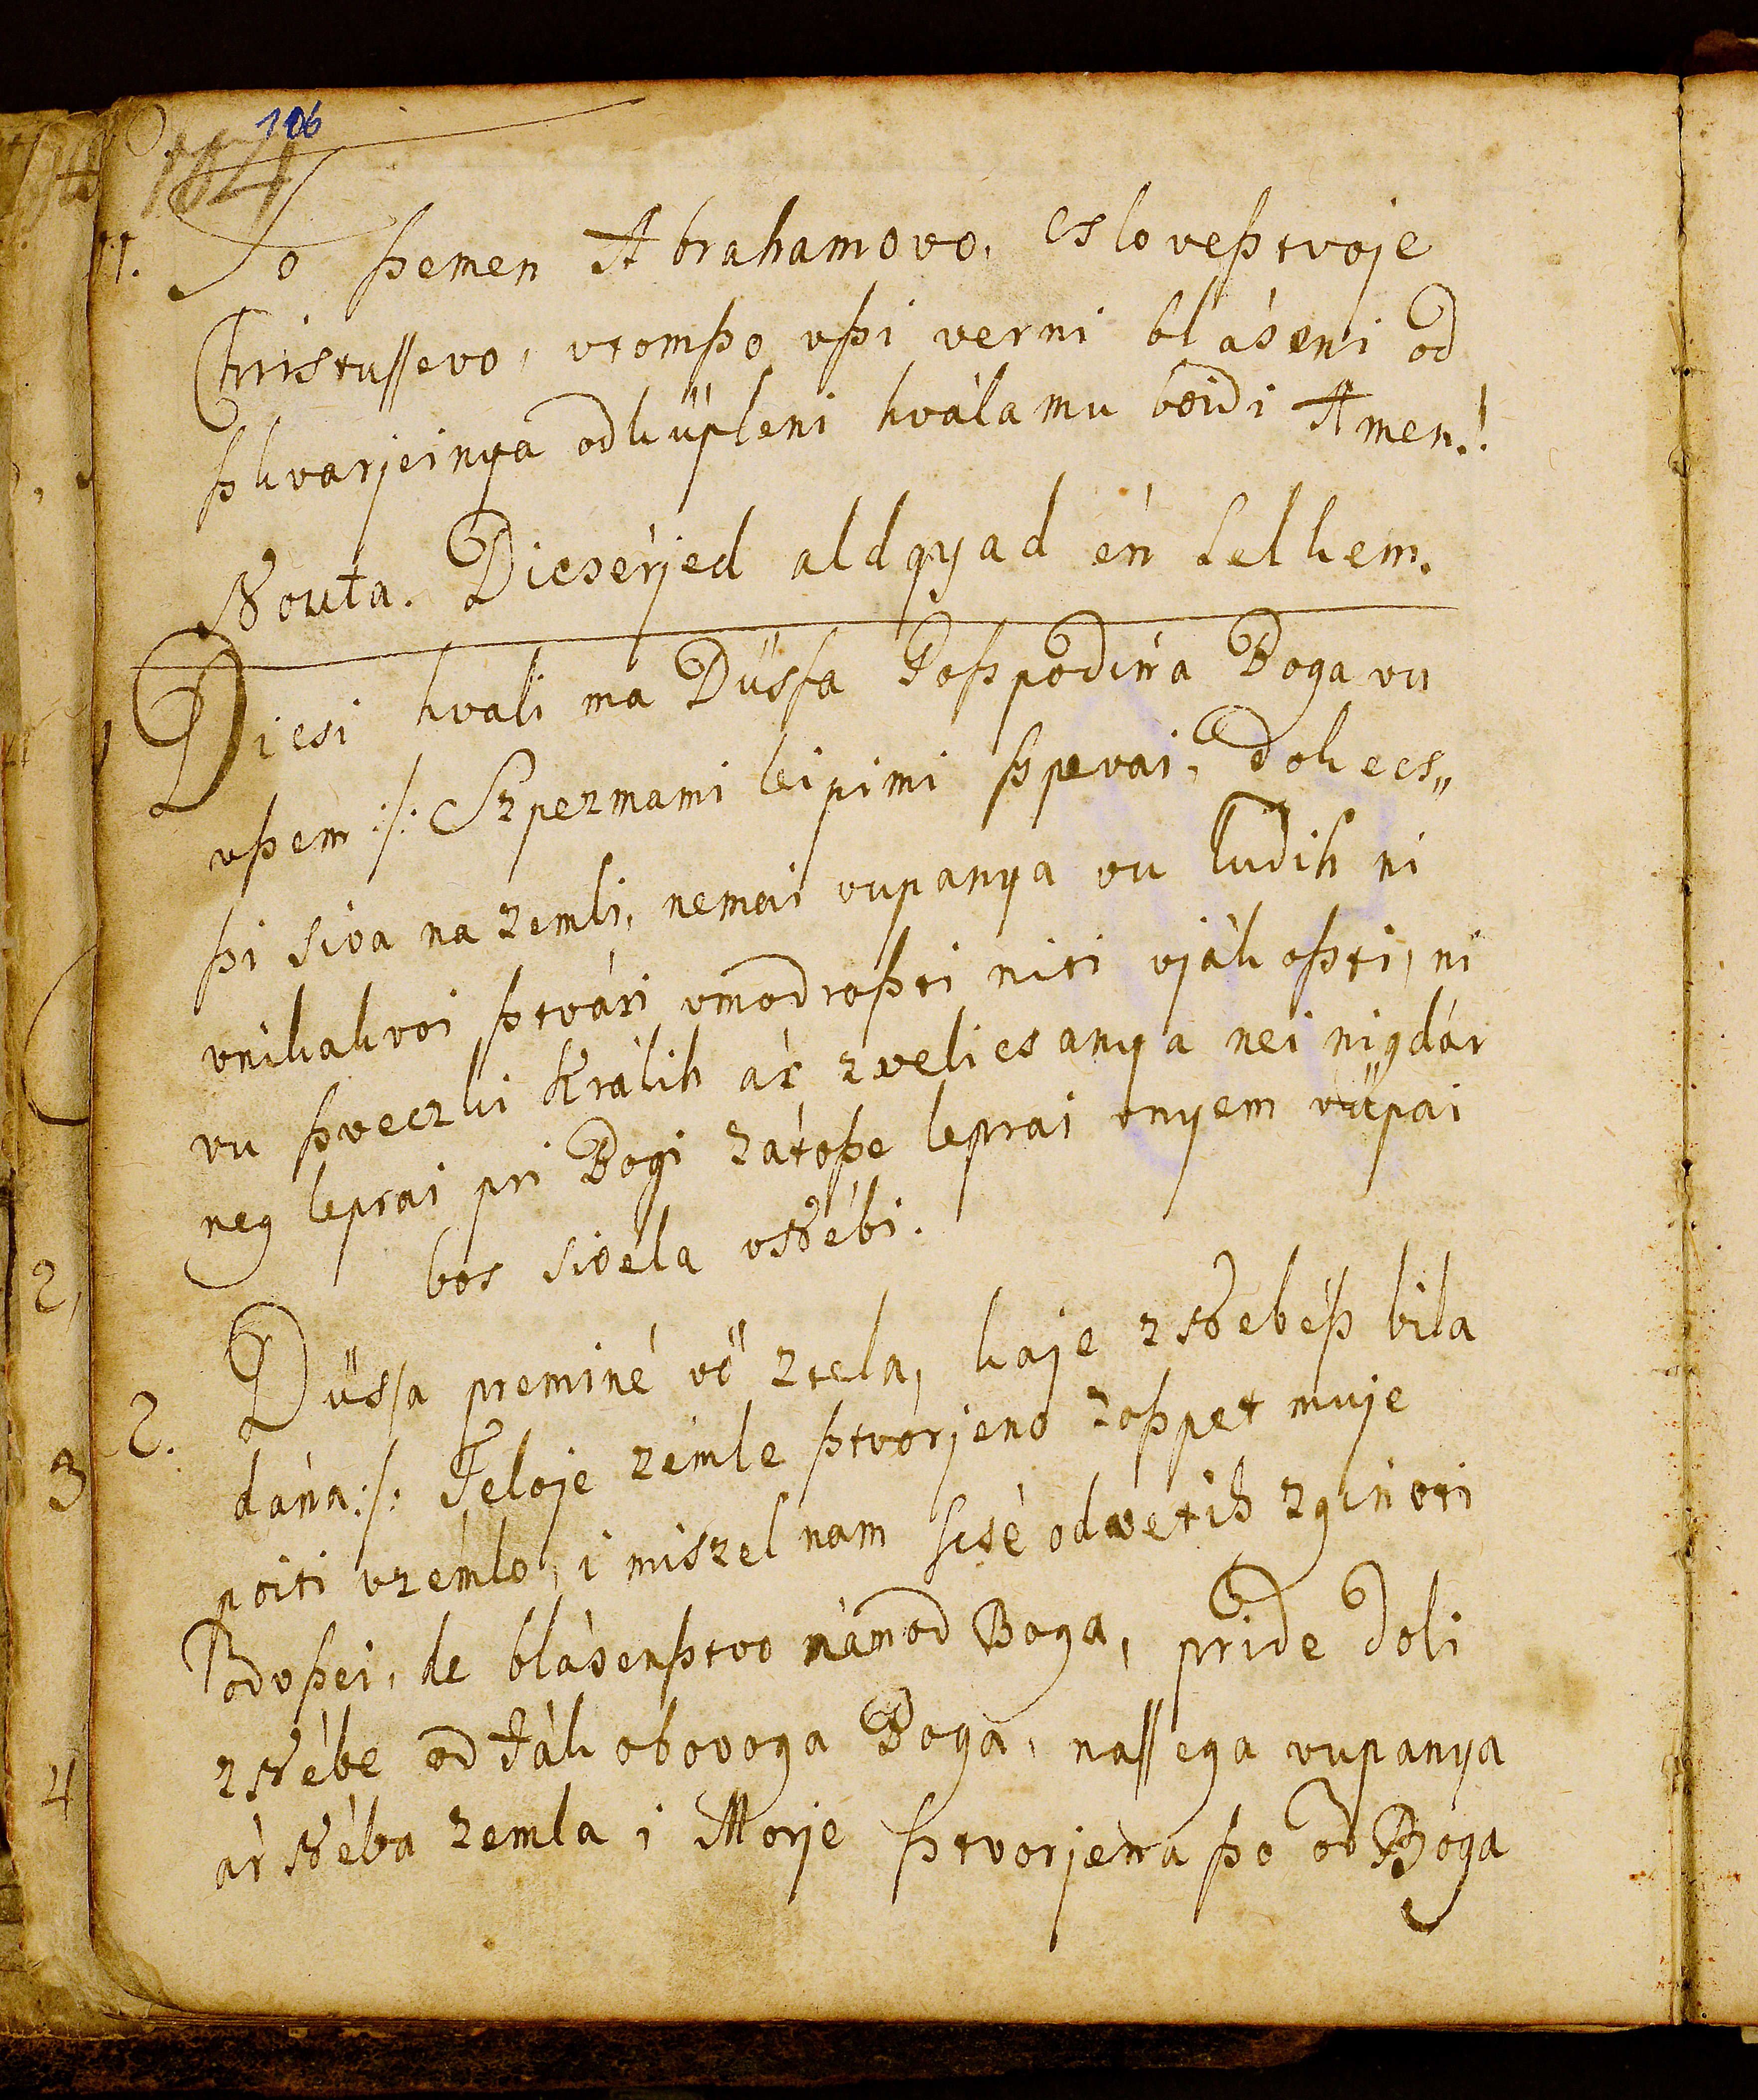 106
164
11. To ßemen Abrahamovo, csloveßtvoje
Christussevo, vtomßo vßi verni blaseni od
ßkvarjeinya odkűpleni hvála mu boidi Amen.!
Nouta. Dicsérjed áldgyad én Lelkem.
1 Dicsi hvali ma Düssa Goßpodina Boga vu
vßem :/: Szpezmami leipimi ßpevai, dokecs„
ßi siva na zemli, nemai vupanya vu ludih ni
vnikakvoi ßtvári vmodroßti niti vjákoßti, ni
vu ßveczki Králih ár zvelicsanya nei nigdár
neg leprai pri Bogi zátoße leprai vnyem vüpai
bos sivela vNébi.
2. Düssa preminé vö ztela, kaje zNebéß bila
dána:/: Teloje zémle ßtvorjeno zoßpet muje
poiti vzémlo, i miszel nam scsé odvetih zginoti
Odvßei, de blásenßtvo nám od Boga, pride doli
zNébe od Jákobovoga Boga, nassega vupanya
ár Néba zemla i Morje ßtvorjena ßo od Boga
2,
3
4